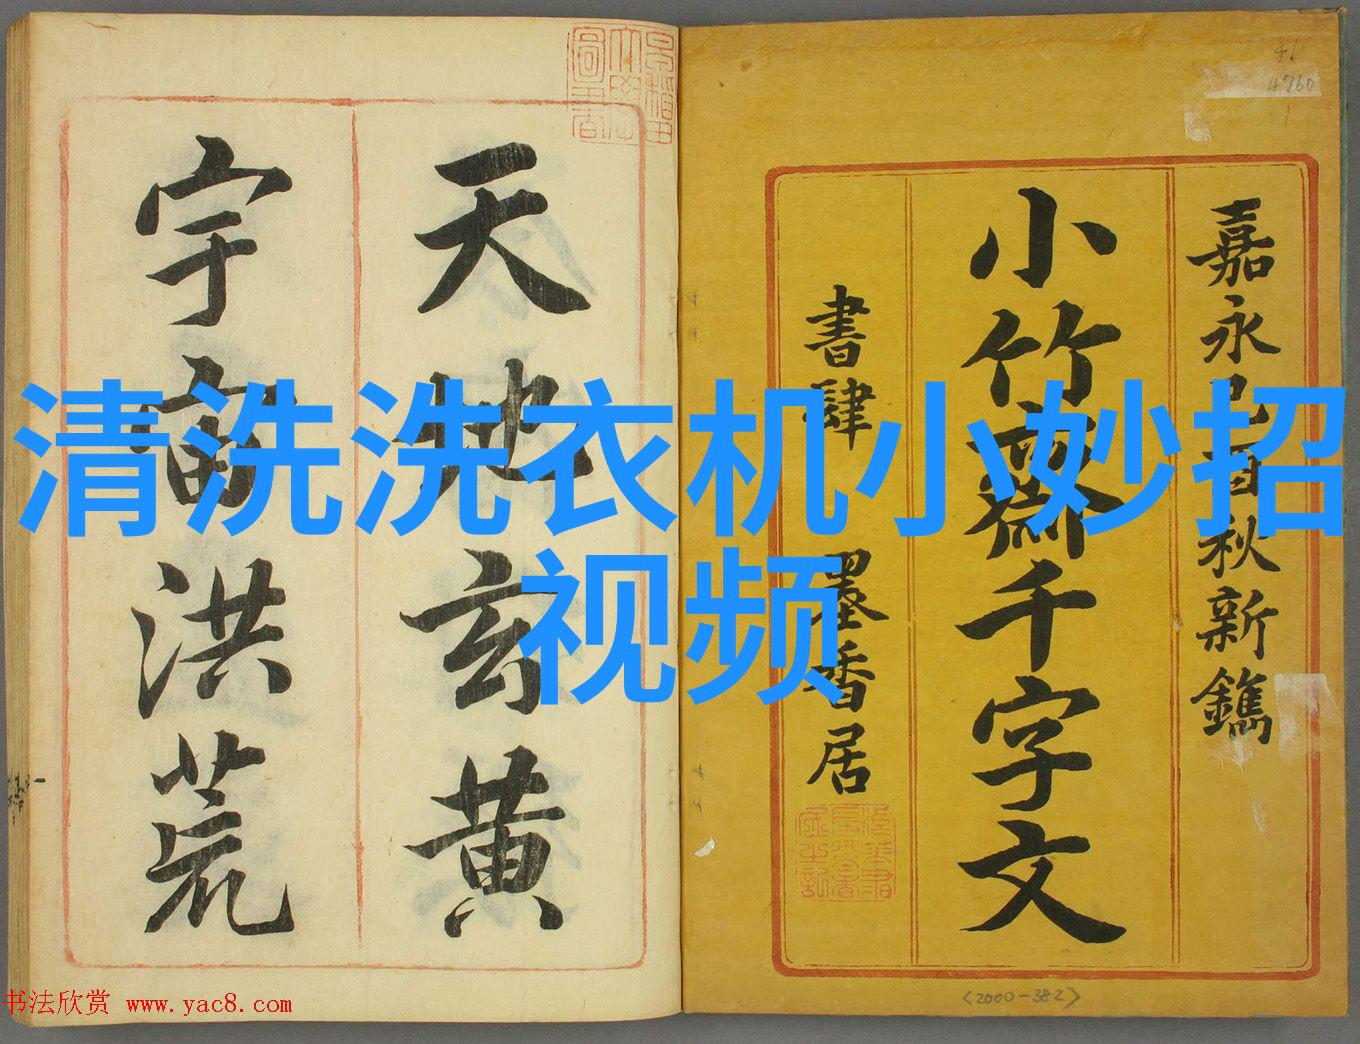 嘉永己酉秋新鐫
小竹齋千字文
書肆 墨香居
天地玄黄
宇宙洪荒
清洗洗衣机小妙招
视频
46
4760
<2000-382>
书法欣赏 www.yac8.com